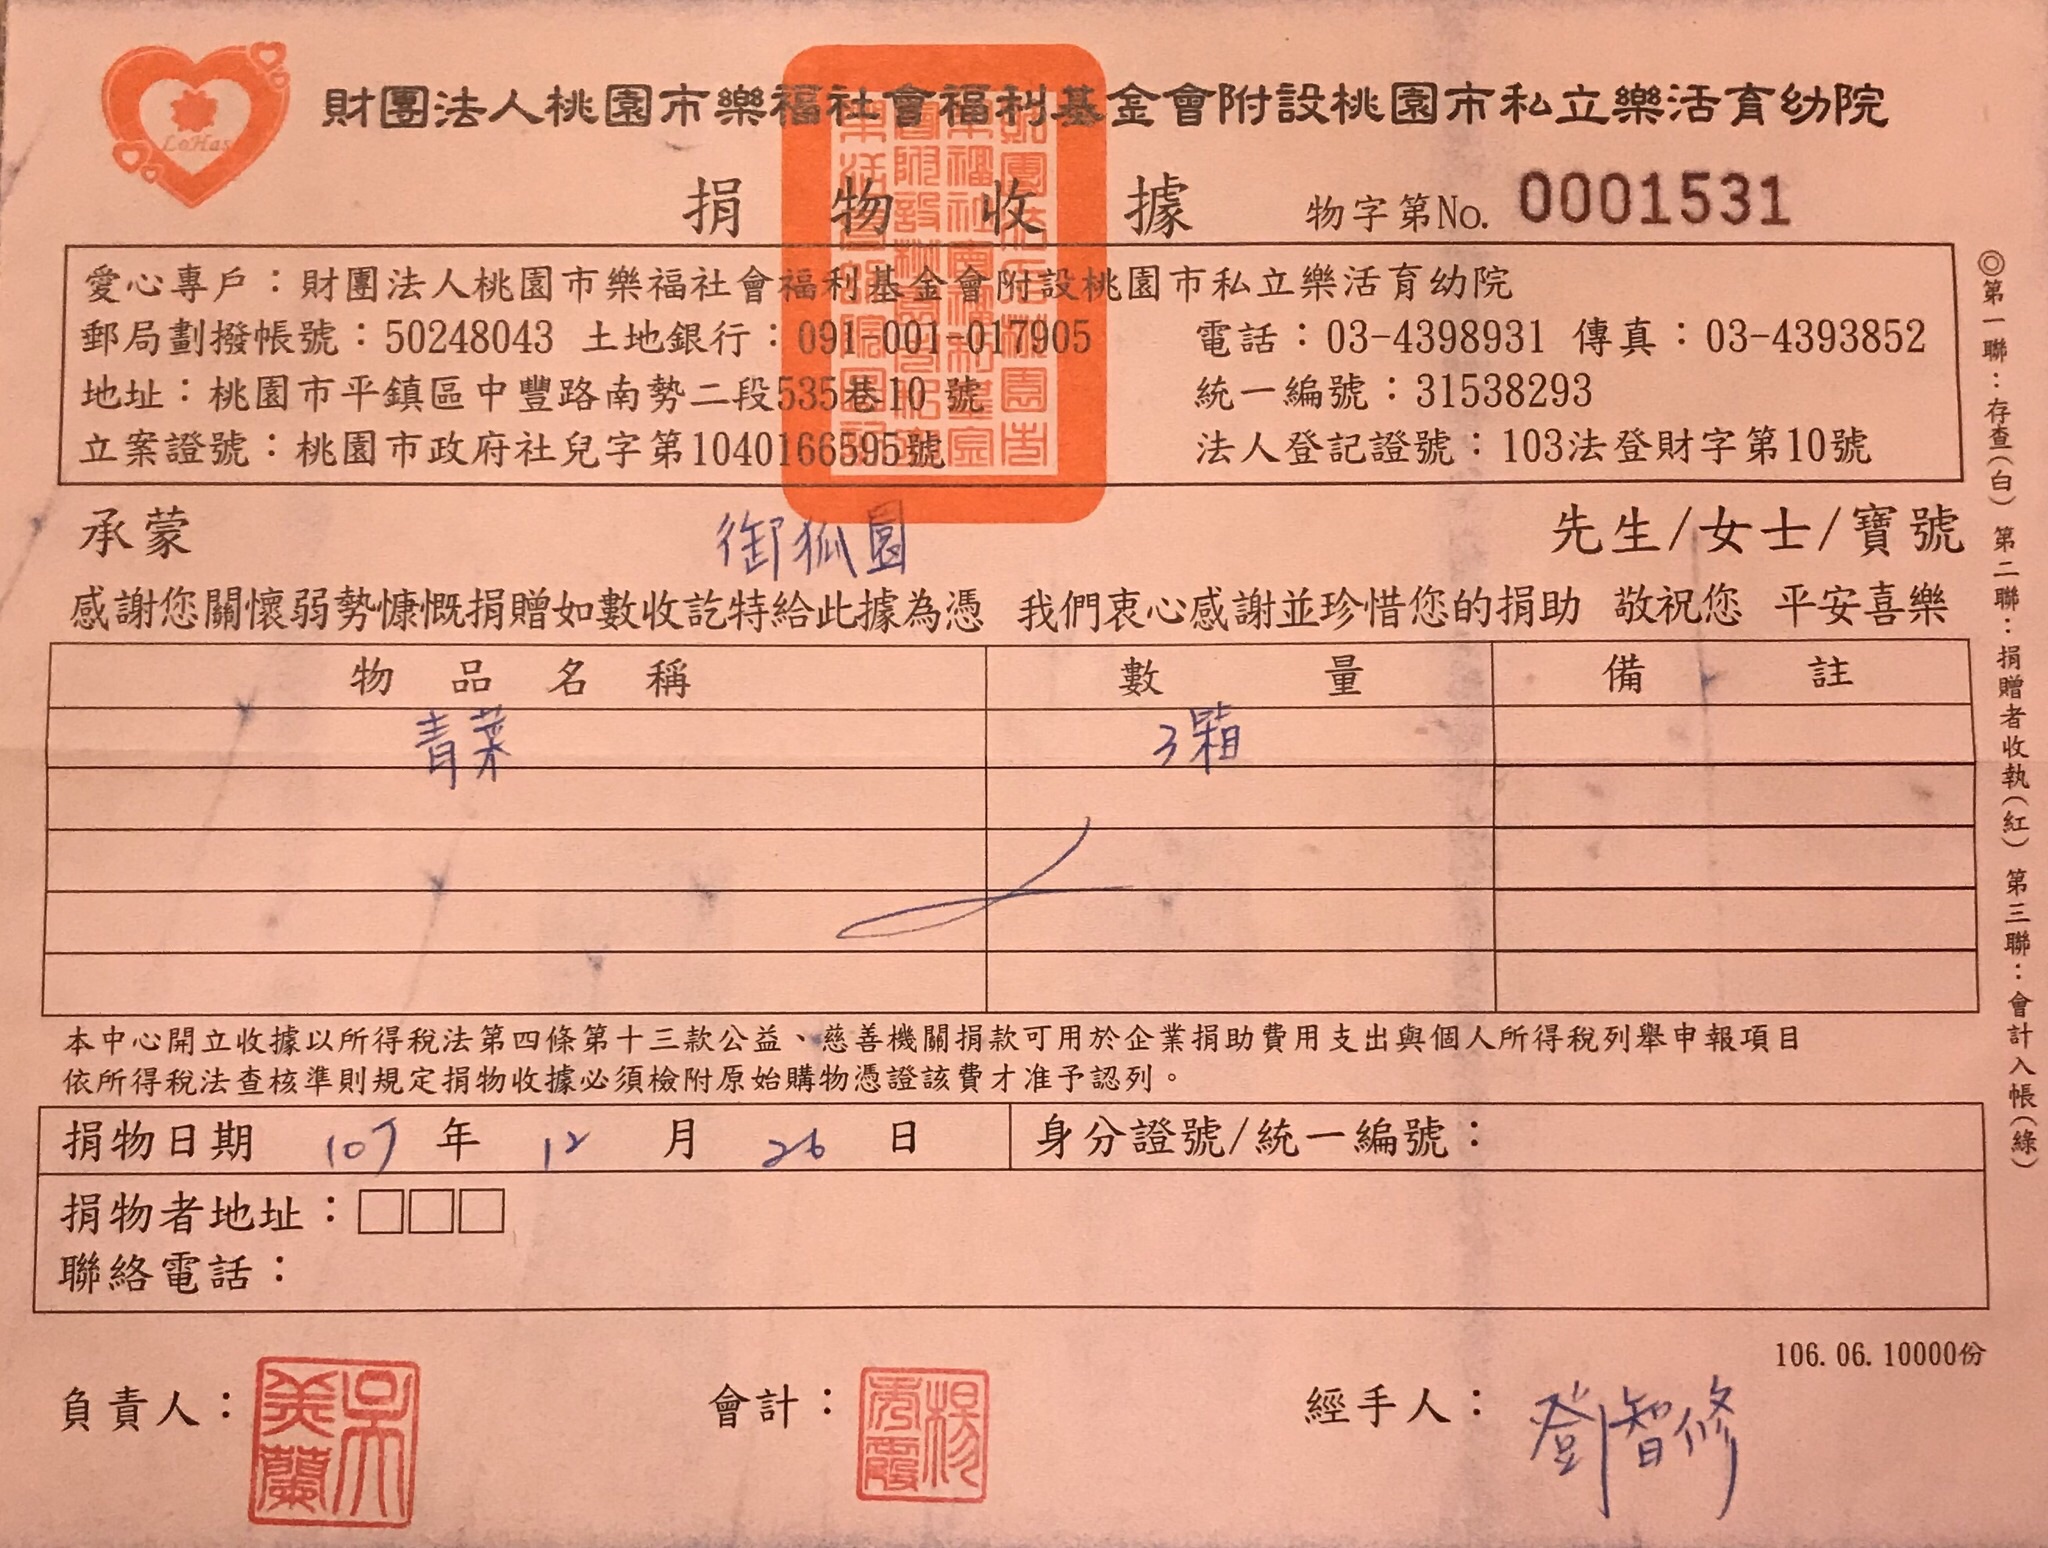 LoHas
財團法人桃園市樂福社會福利基金會附設桃園市私立樂活育幼院
捐物收據 物字第No. 0001531
愛心專戶：財團法人桃園市樂福社會福利基金會附設桃園市私立樂活育幼院
郵局劃撥帳號：50248043 土地銀行：091-001-017905 電話：03-4398931 傳真：03-4393852
地址：桃園市平鎮區中豐路南勢二段535巷10號 統一編號：31538293
立案證號：桃園市政府社兒字第1040166595號 法人登記證號：103法登財字第10號
承蒙 御狐園 先生/女士/寶號
感謝您關懷弱勢慷慨捐贈如數收訖特給此據為憑 我們衷心感謝並珍惜您的捐助 敬祝您 平安喜樂
物品名稱 數量 備註
青菜 3箱
本中心開立收據以所得稅法第四條第十三款公益、慈善機關捐款可用於企業捐助費用支出與個人所得稅列舉申報項目
依所得稅法查核準則規定捐物收據必須檢附原始購物憑證該費才准予認列。
捐物日期 107 年 12 月 26 日 身分證號/統一編號：
捐物者地址：□□□
聯絡電話：
106.06.10000份
負責人：吳美蘭 會計：楊秀霞 經手人：鄧智修
◎第一聯：存查(白) 第二聯：捐贈者收執(紅) 第三聯：會計入帳(綠)